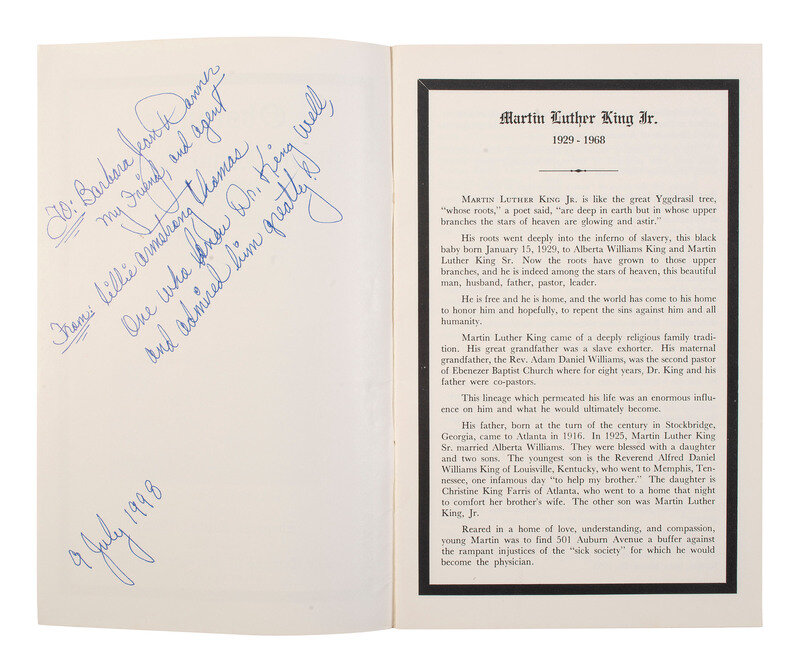 To: Barbara Jean Danner
my Friend, and agent
From: Lillie Armstrong Thomas
One who know Dr. King well,
and admired him greatly!
9 July 1998
Martin Luther King Jr.
1929 - 1968
MARTIN LUTHER KING JR. is like the great Yggdrasil tree,
"whose roots," a poet said, "are deep in earth but in whose upper
branches the stars of heaven are glowing and astir."
His roots went deeply into the inferno of slavery, this black
baby born January 15, 1929, to Alberta Williams King and Martin
Luther King Sr. Now the roots have grown to those upper
branches, and he is indeed among the stars of heaven, this beautiful
man, husband, father, pastor, leader.
He is free and he is home, and the world has come to his home
to honor him and hopefully, to repent the sins against him and all
humanity.
Martin Luther King came of a deeply religious family tradi-
tion. His great grandfather was a slave exhorter. His maternal
grandfather, the Rev. Adam Daniel Williams, was the second pastor
of Ebenezer Baptist Church where for eight years, Dr. King and his
father were co-pastors.
This lineage which permeated his life was an enormous influ-
ence on him and what he would ultimately become.
His father, born at the turn of the century in Stockbridge,
Georgia, came to Atlanta in 1916. In 1925, Martin Luther King
Sr. married Alberta Williams. They were blessed with a daughter
and two sons. The youngest son is the Reverend Alfred Daniel
Williams King of Louisville, Kentucky, who went to Memphis, Ten-
nessee, one infamous day "to help my brother." The daughter is
Christine King Farris of Atlanta, who went to a home that night
to comfort her brother's wife. The other son was Martin Luther
King, Jr.
Reared in a home of love, understanding, and compassion,
young Martin was to find 501 Auburn Avenue a buffer against
the rampant injustices of the "sick society" for which he would
become the physician.